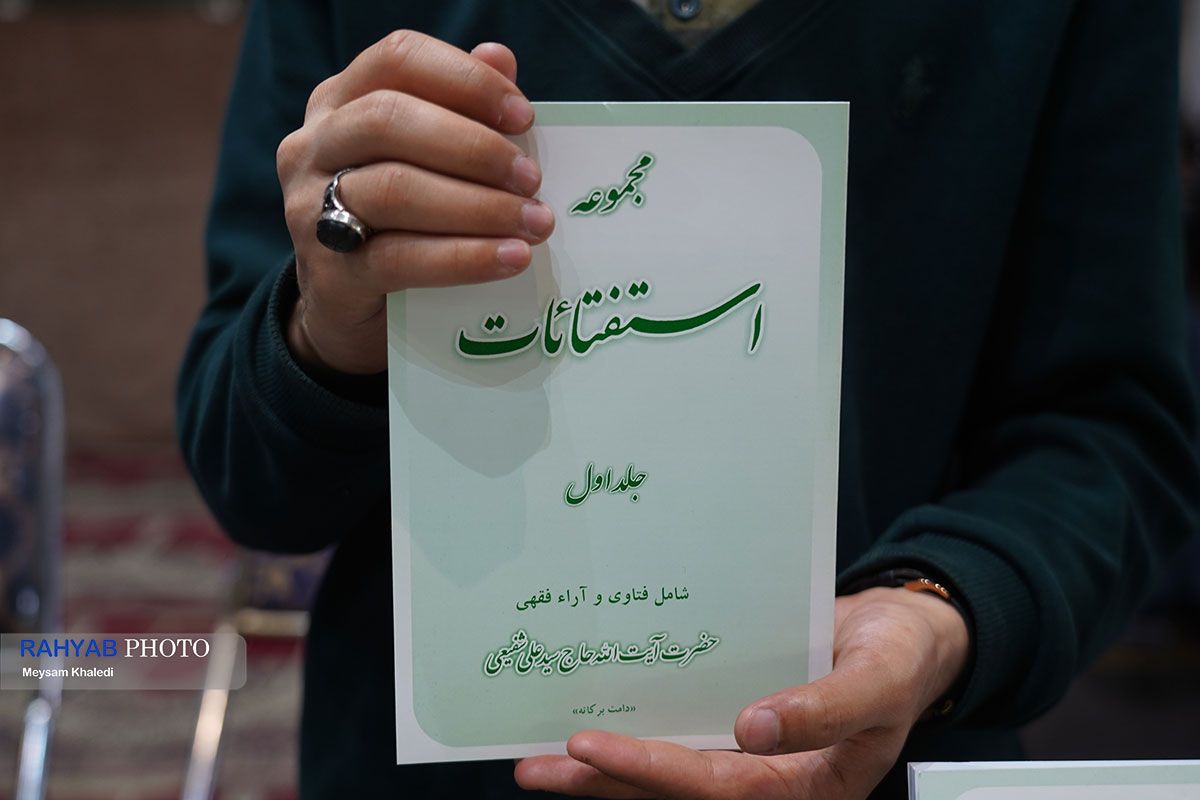 مجموعه
استفتائات
جلد اول
شامل فتاوی و آراء فقهی
حضرت آیت الله حاج سید علی شفیعی
«دامت برکاته»
RAHYAB PHOTO
Meysam Khaledi